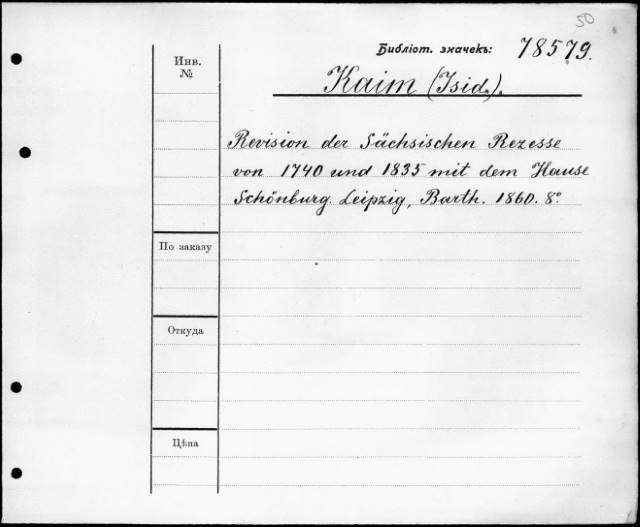 50
Библіот. значекъ: 78579.
Инв.
№
Kaim (Isid.).
Revision der Sächsischen Rezesse
von 1740 und 1835 mit dem Hause
Schönburg. Leipzig, Barth. 1860. 8°.
По заказу
Откуда
Цѣна